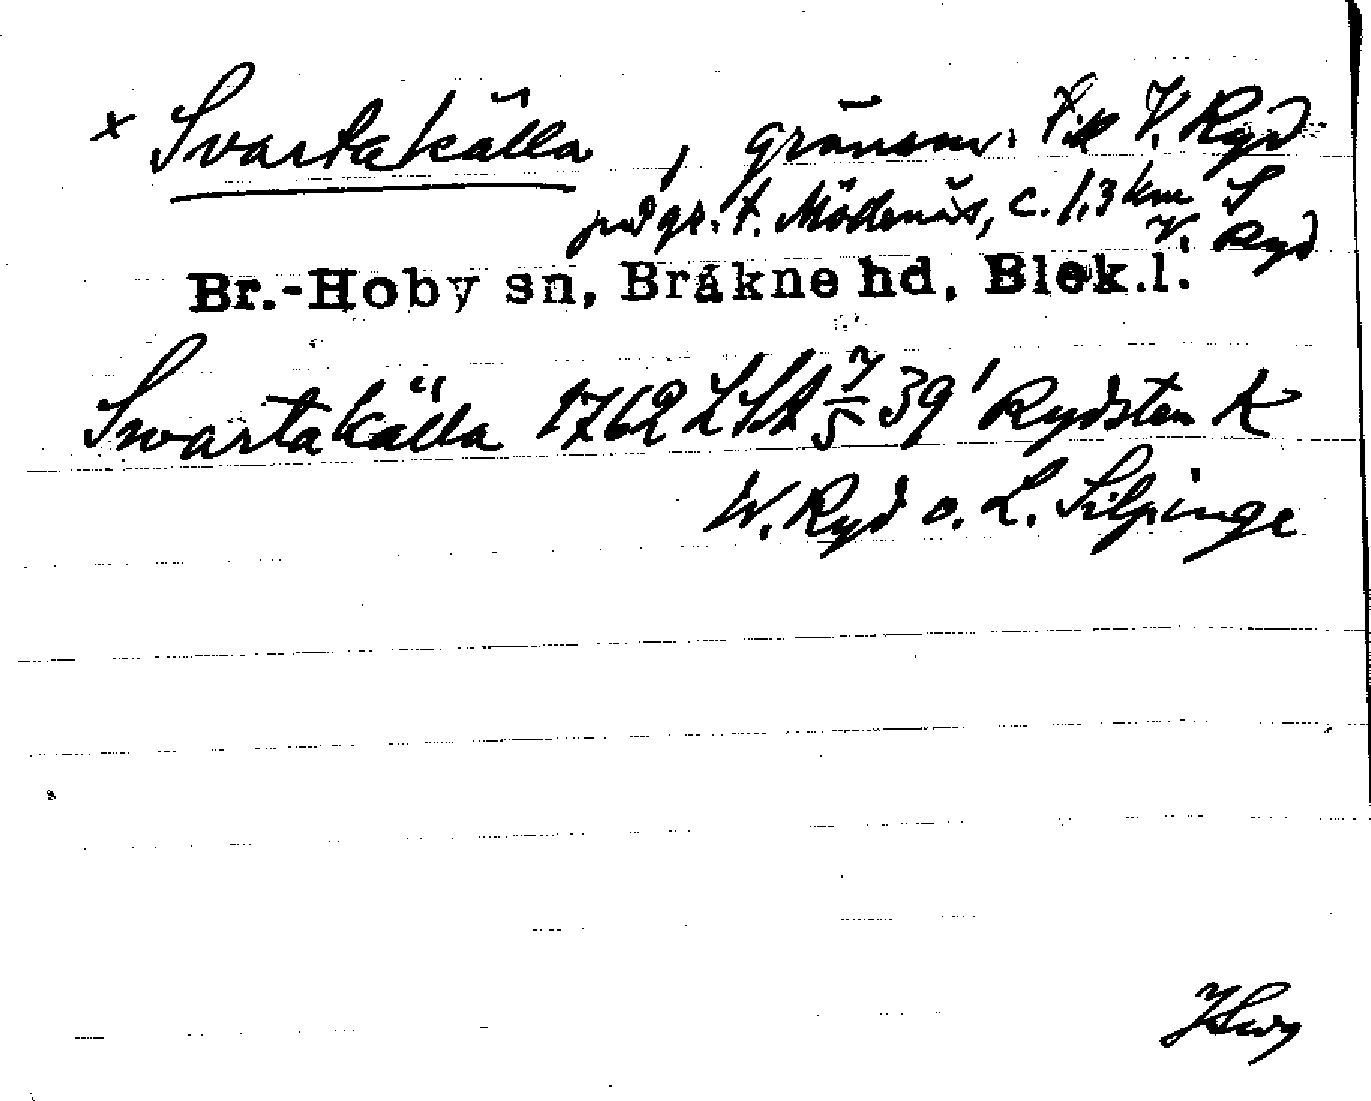 × Svartakälla, gränsm. till V. Ryd
på gr. t. Möllenäs, c. 1,3 km S
V. Ryd
Br.-Hoby sn, Bräkne hd, Blek.l.
Svartakälla 1762 LSA 7/5 39' Rydsten K
W. Ryd o. L. Silpinge